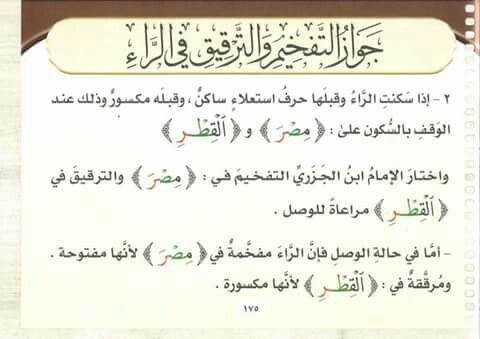 جَوَازُ التَّفْخِيمِ وَالتَّرْقِيقِ فِي الرَّاءِ
٢ - إذا سَكنتِ الرَّاءُ وقبلَها حرفُ استعلاءٍ ساكنٌ ، وقبلَه مكسورٌ وذلك عند
الوَقفِ بالسُّكون علىٰ : ﴿ مِصْرَ ﴾ و ﴿ ٱلْقِطْرِ ﴾
واختارَ الإمامُ ابنُ الجَزَريِّ التفخيمَ في : ﴿ مِصْرَ ﴾ والترقيقَ في
﴿ ٱلْقِطْرِ ﴾ مراعاةً للوصل .
- أمَّا في حالةِ الوصلِ فإنَّ الرَّاءَ مفخَّمةٌ في ﴿ مِصْرَ ﴾ لأنها مفتوحة .
ومُرقَّقةٌ في : ﴿ ٱلْقِطْرِ ﴾ لأنها مكسورة .
١٧٥